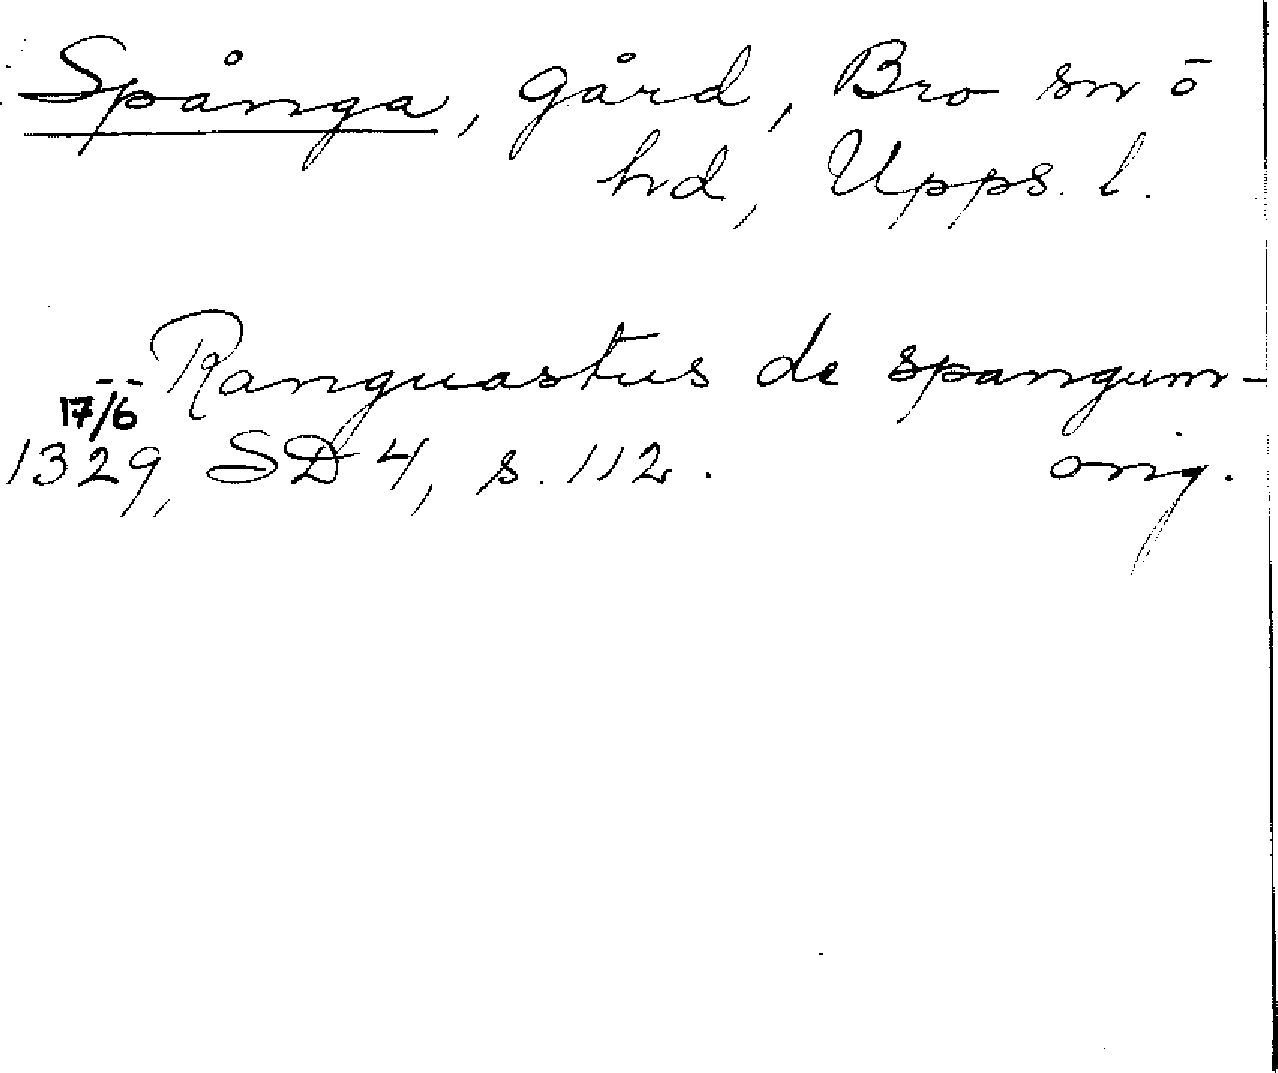 Spånga, gård, Bro sn ō
hd, Upps. l.
Ranguastus de spangum -
17/6
1329, SD 4, s. 112. orig.